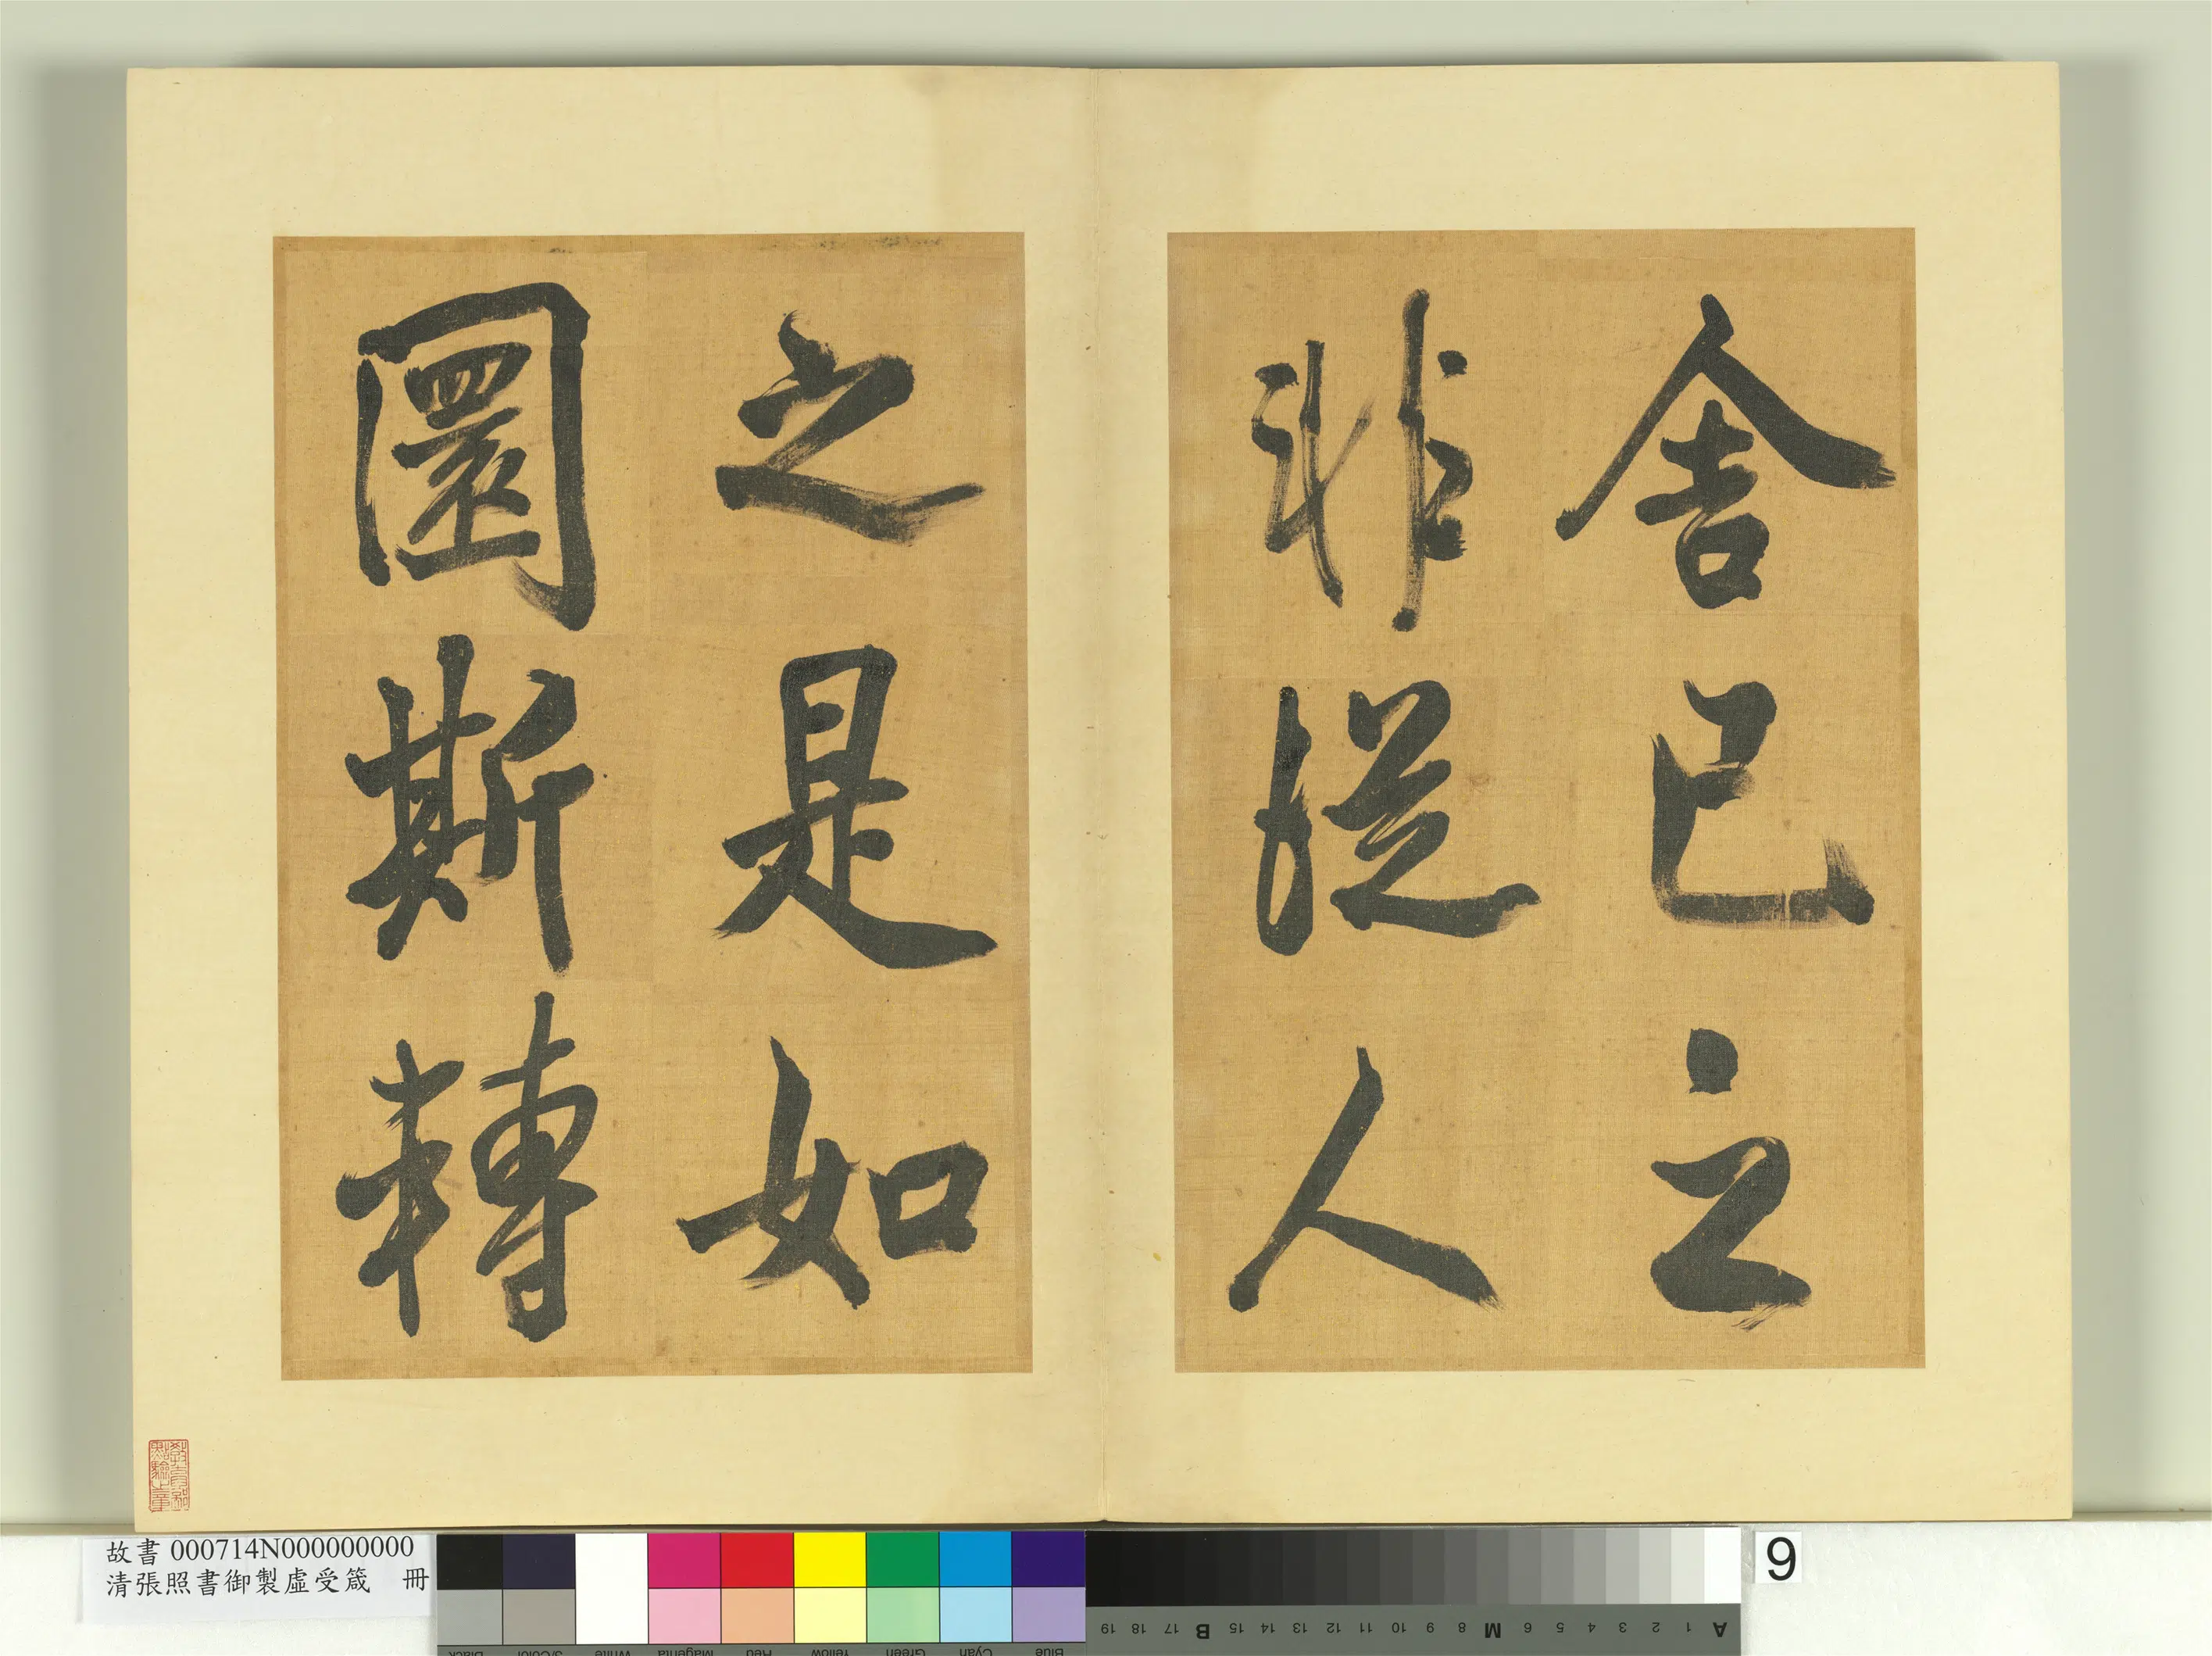 舍己之
非從人
之是如
圜斯轉
教育部點驗之章
故書 000714N000000000
清張照書御製虛受箴 冊
Black
3/Color
White
Magenta
Red
Yellow
Green
Cyan
Blue
A 1 2 3 4 5 6 M 8 9 10 11 12 13 14 15 B 17 18 19
9